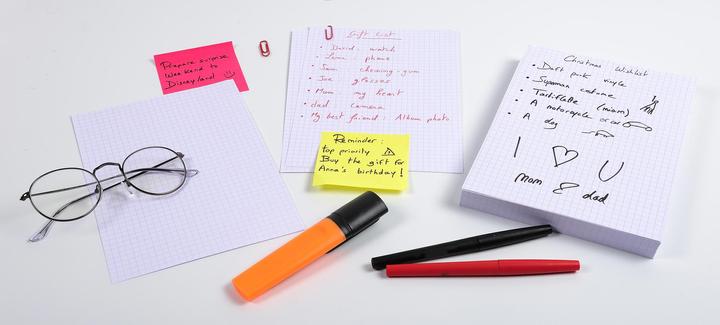 Prepare surprise
Weekend to
Disneyland
Gift List
• David : watch
• Lena : phone
• Sam : chewing-gum
• Joe : glasses
• Mom : my heart
• dad : camera
• My best friend : Album photo
Reminder :
top priority
Buy the gift for
Anna's birthday !
Christmas Wishlist
• Daft punk vinyle
• Superman costume
• Tartiflette (miam)
• A motorcycle or car
• A dog
I ♡ U
mom & dad